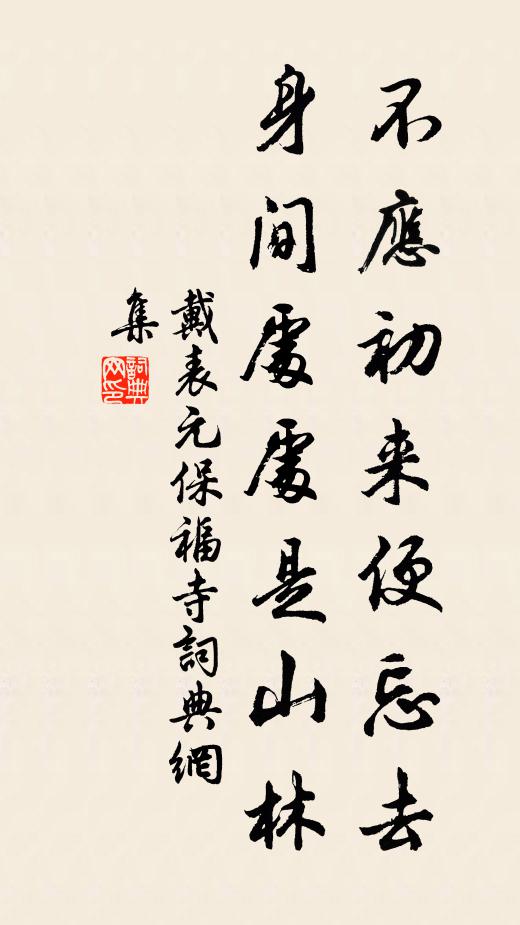 不應初来便忘去
身間處處是山林
戴表元保福寺詞典網
集
詞典網印